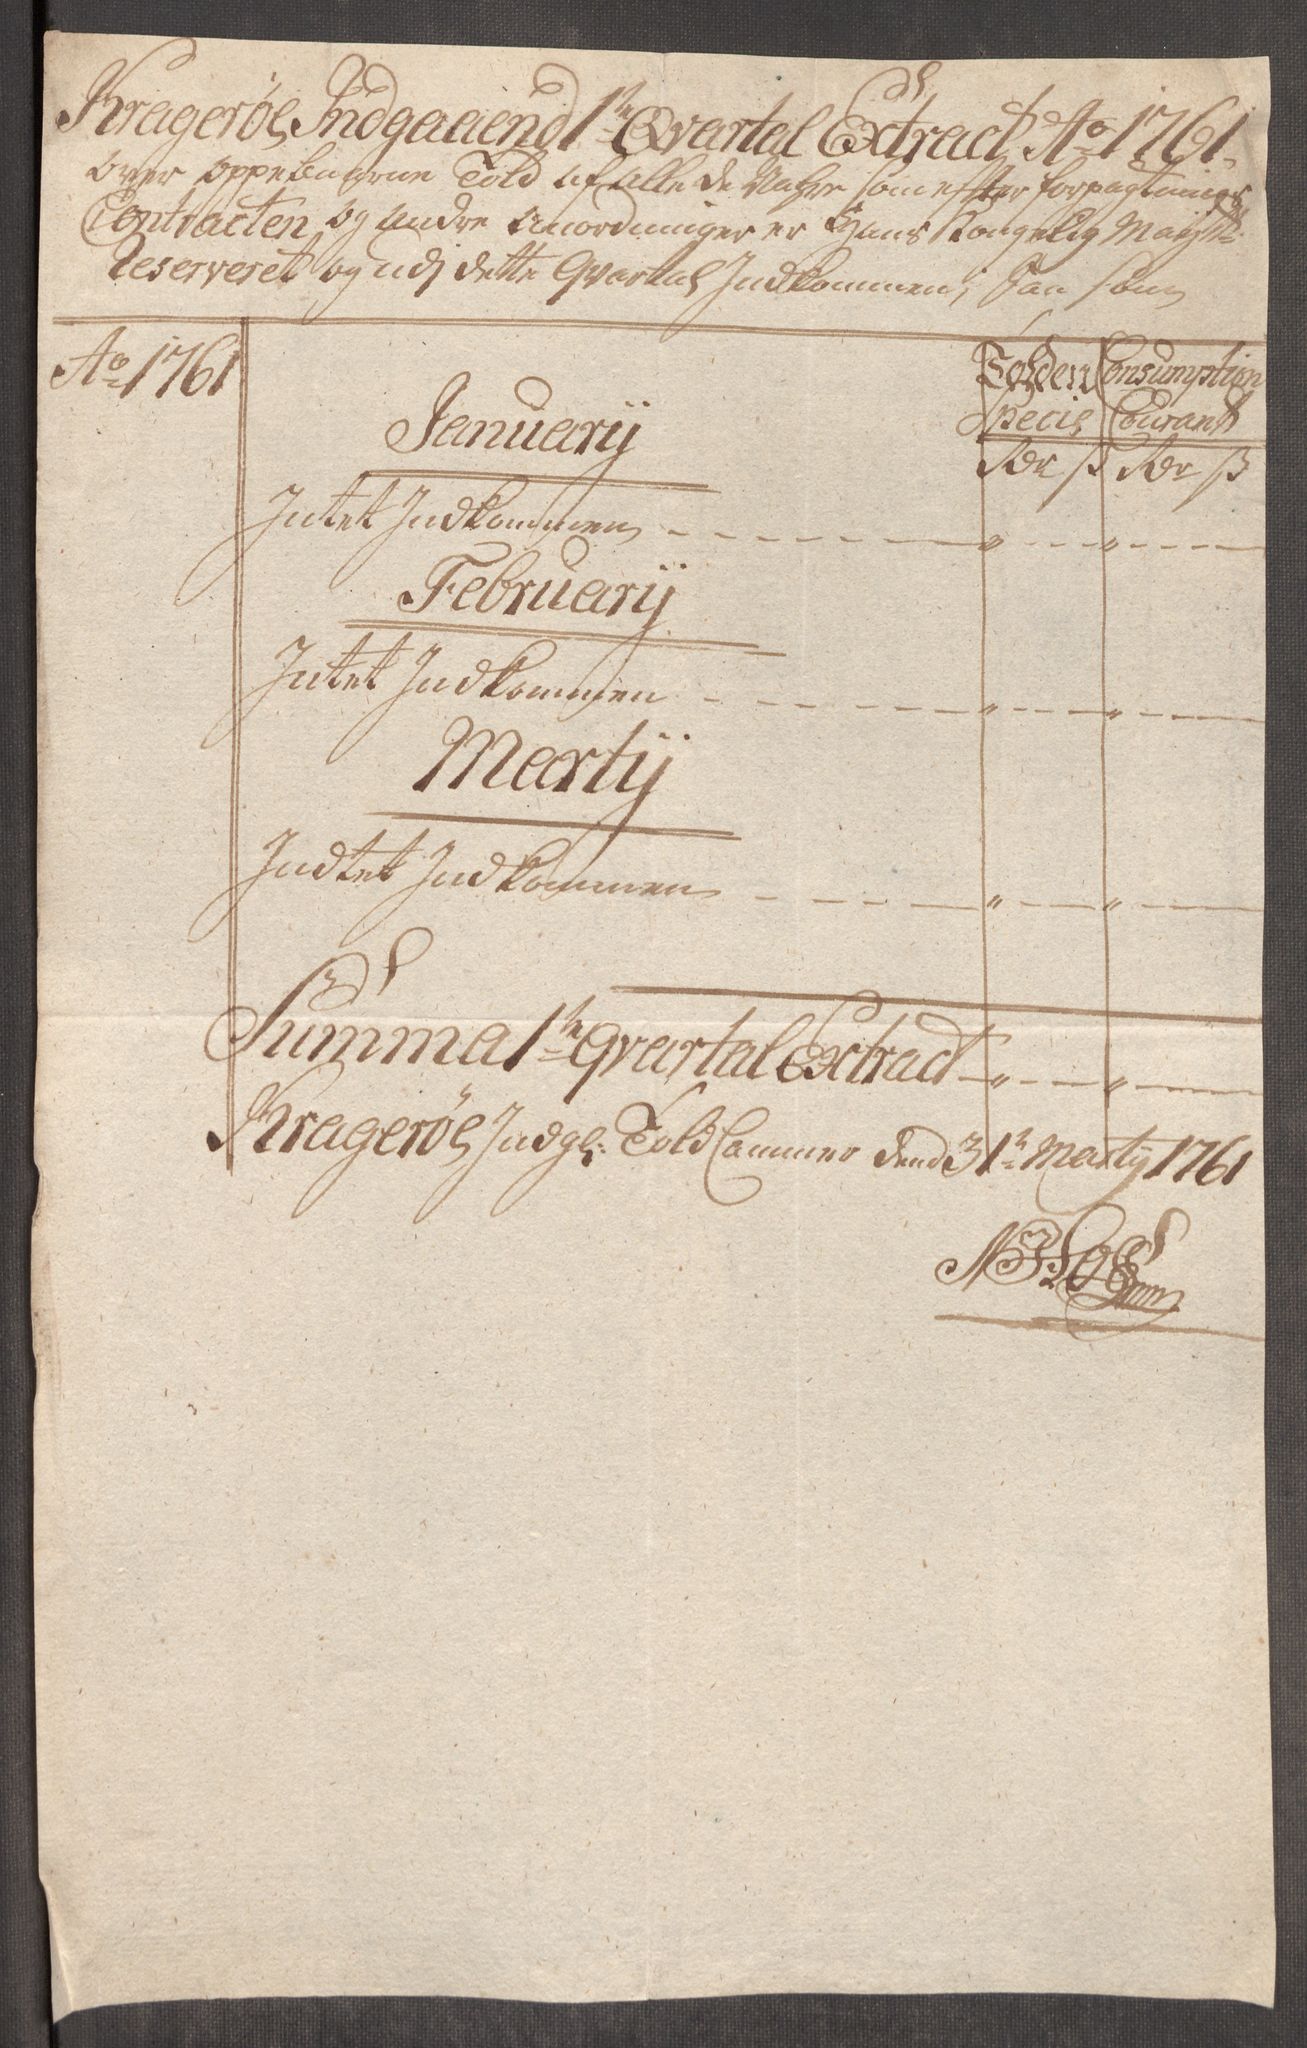 Kragerøes Indgaaend 1ste Qvartal Extract Ao 1761
over oppebaarne Told af alle de Vahre som efter forpagtnings
Contracten og andre anordninger er Hans Kongelig Mayts:
Reserveret og udj dette Qvartal Indkommen, Saa som
Ao 1761
Tolden Consumption
Januarij
Specie Courant
Rdr ß Rdr ß
Intet Indkommen - - - " - - - " - - -
Februarij
Intet Indkommen - - - " - - - " - - -
Martij
Indtet Indkommen - - - " - - - " - - -
Summa 1te Qvartal Extract - " - - - " - - -
Kragerøes Indg: Told Cammer dend 31te Martij 1761